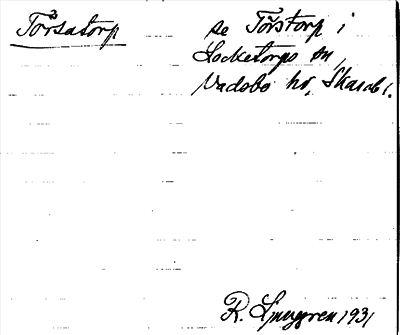 Torsatorp
se Törstorp i
Locketorps sn,
Vadsbo hd, Skarab.
R. Ljunggren 1931